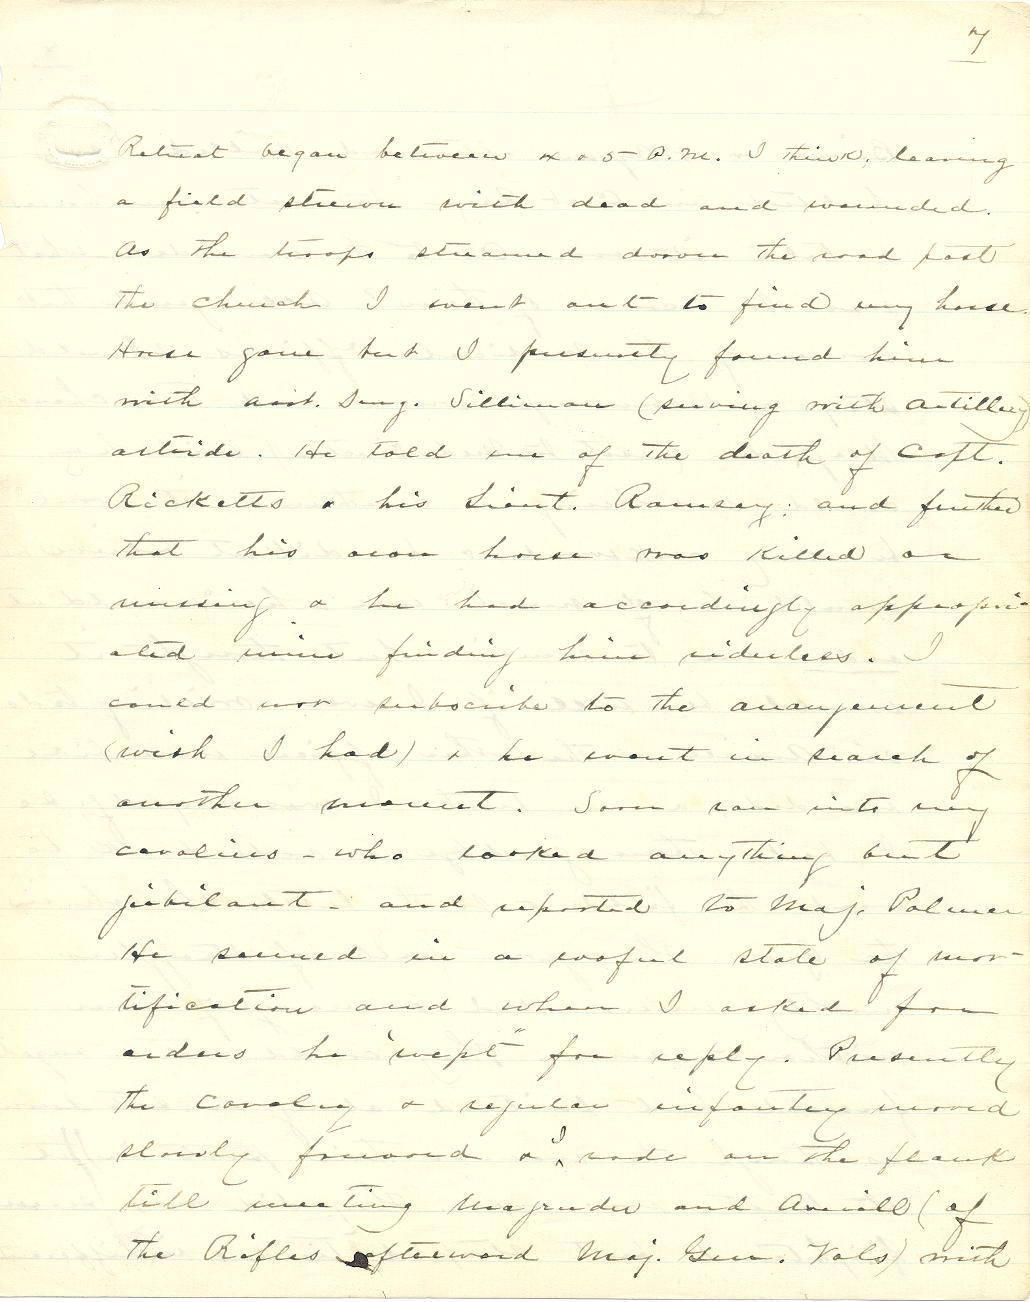 7
Retreat began between 4 & 5 P.M. I think, leaving
a field strewn with dead and wounded.
As the troops streamed down the road past
the church I went out to find my horse.
Horse gone but I presently found him
with asst. Surg. Silliman (serving with artillery)
astride. He told me of the death of Capt.
Ricketts & his Lieut. Ramsay; and further
that his own horse was killed or
missing & he had accordingly appropri-
ated mine finding him riderless. I
could not subscribe to the arrangement
(wish I had) & he went in search of
another mount. Soon ran into my
cavaliers - who looked anything but
jubilant - and reported to Maj. Palmer
He seemed in a woful state of mor-
tification and when I asked for
orders he "wept" for reply. Presently
the Cavalry & regular infantry moved
slowly forward & I rode on the flank
till meeting Magruder and Averill (of
the Rifles afterward Maj. Gen. Vols) with